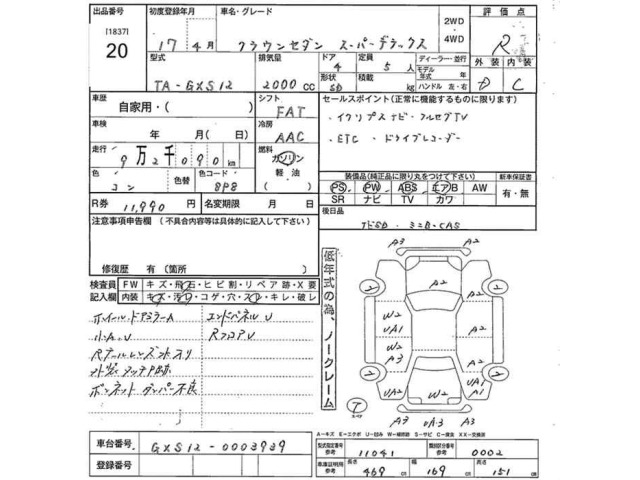 出品番号 初度登録年月 車名・グレード 2WD・4WD 評価点
[1837]
20
17 4月 クラウンセダン スーパーデラックス R
型式 排気量 ドア 定員 ディーラー・並行 外装 内装
4 5人 モデル年式 年
TA-GXS12 2000cc 形状 SD 積載 kg ハンドル 左・右 D C
車歴 自家用・( ) シフト FAT セールスポイント(正常に機能するものに限ります)
・イクリプスナビ・フルセグTV
車検 年 月(日) 冷房 AAC ・ETC ・ドライブレコーダー
走行 9万2千090km 燃料 ガソリン
軽油
( )
装備品(純正品に限り丸をつけて下さい) 新車保証書
色 コン 色替 色コード 8P8 PS PW ABS エアB AW 有・無
SR ナビ TV カワ
R券 11,990円 名変期限 月 日 後日品
注意事項申告欄(不具合内容等は具体的に記入して下さい)
修復歴 有(箇所 )
検査員記入欄 FW キズ・飛石・ヒビ割・リペア跡・X要
内装 キズ・汚れ・コゲ・穴・スレ・キレ・破レ
低年式の為、ノークレーム
ホイール・ドアミラーA エンドパネルU
小A・U RフロアU
ボンネットダンパー不良
A3 A2
A2
2 2
W2 UA1
W2 A2
W2 A3
2 2
UA2 A2 UA2 UA1
T
A3 UA3 A3
A-キズ E-エクボ U-凹み W-補修跡 S-サビ C-腐食 XX-交換済
車台番号 GXS12-0003939
登録番号
型式指定番号 参考 11041 類別区分番号 参考 0002
車庫証明用 参考 長さ 469cm 幅 169cm 高さ 151cm